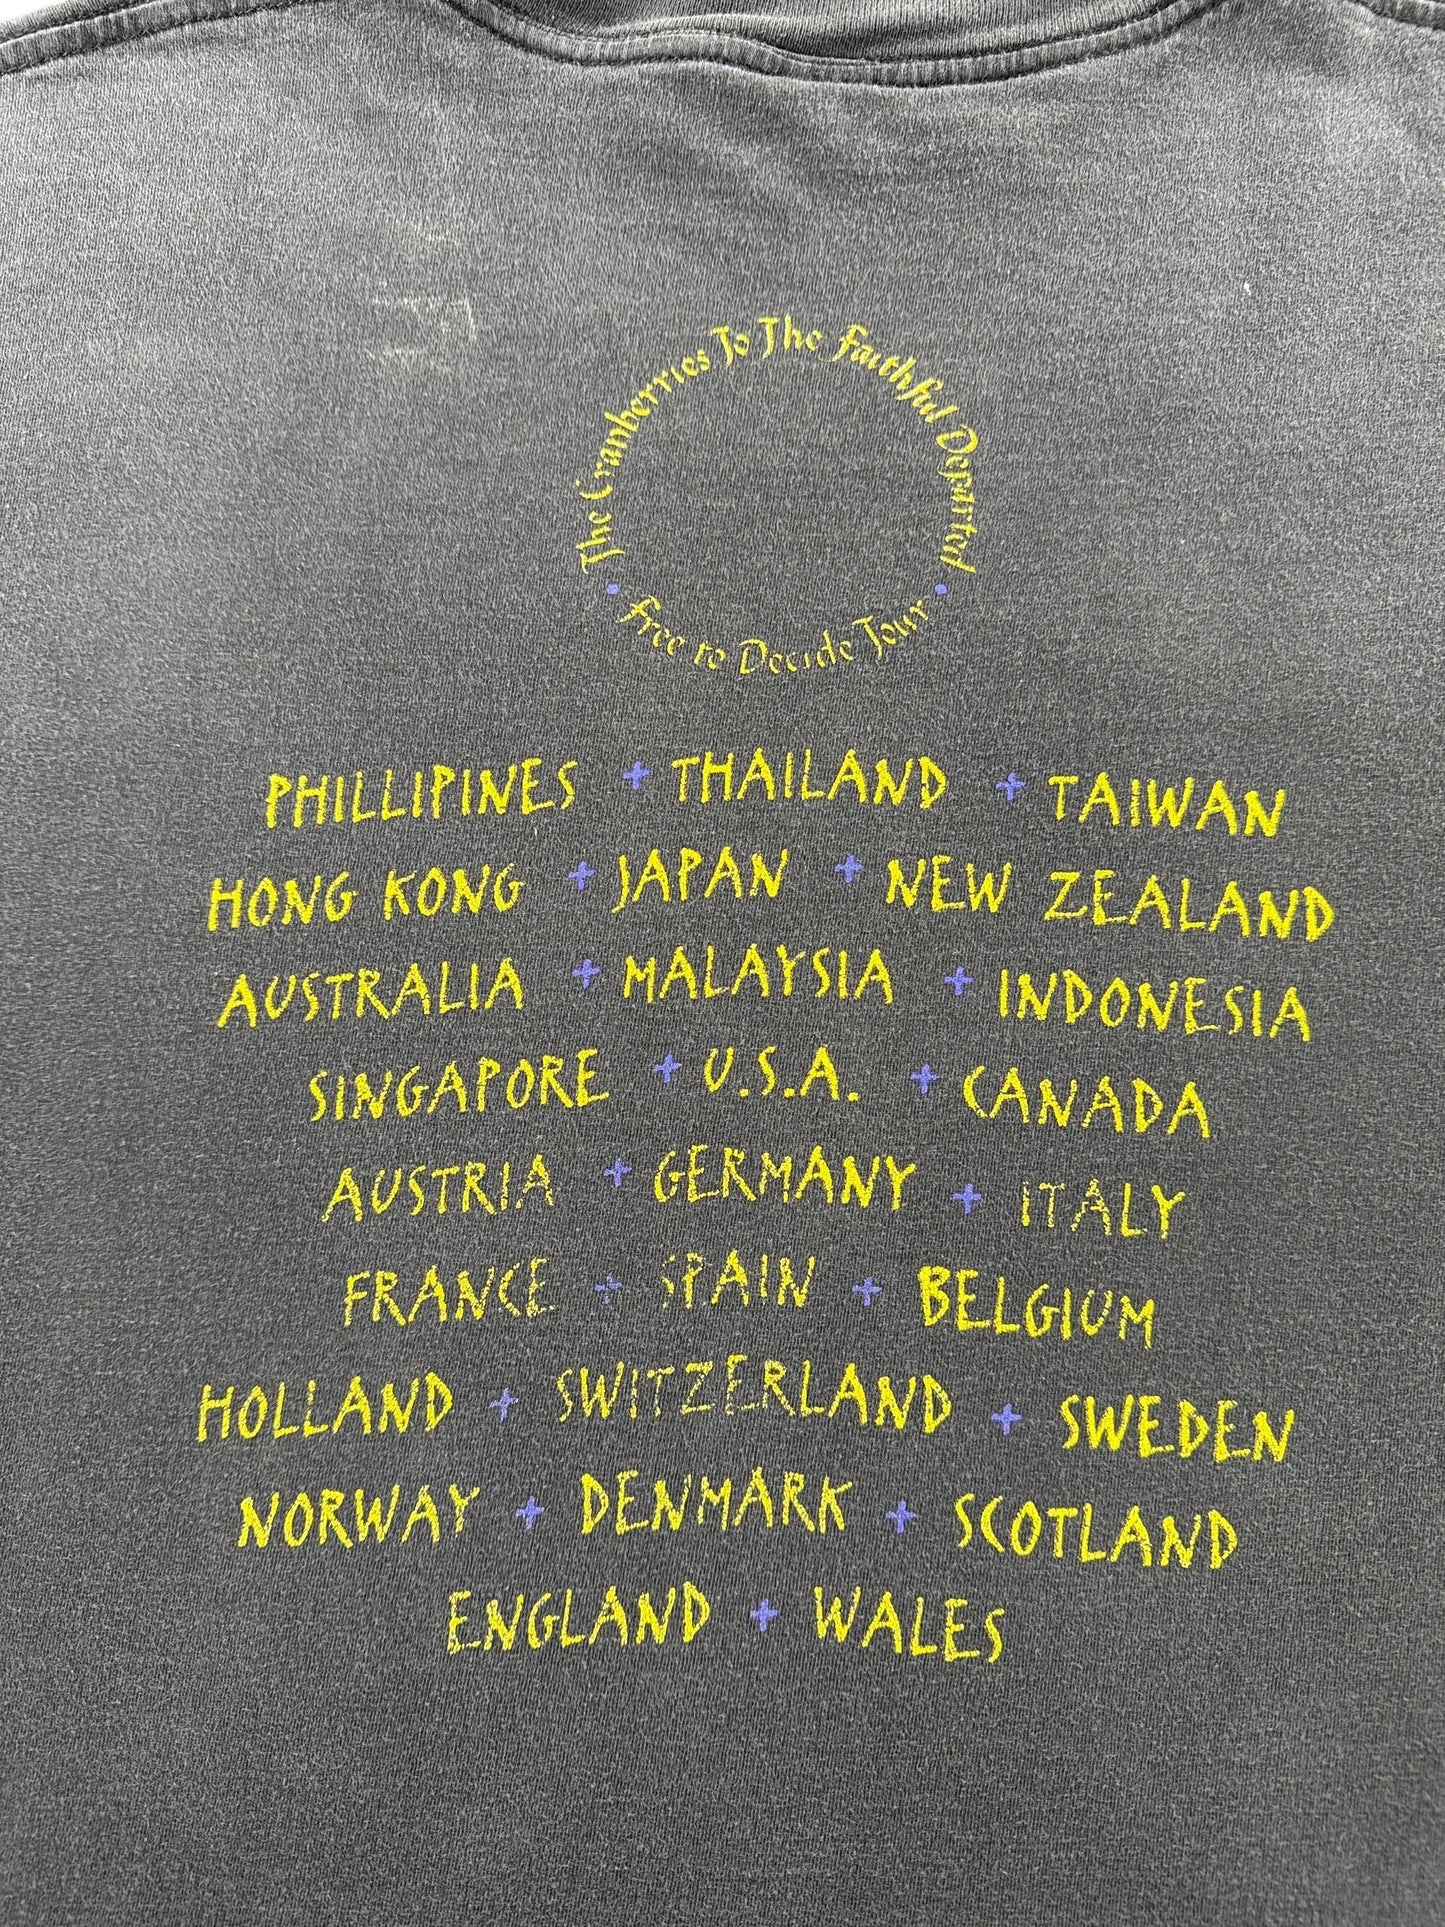 The Cranberries To The Faithful Departed
• Free to Decide Tour •
PHILLIPINES + THAILAND + TAIWAN
HONG KONG + JAPAN + NEW ZEALAND
AUSTRALIA + MALAYSIA + INDONESIA
SINGAPORE + U.S.A. + CANADA
AUSTRIA + GERMANY + ITALY
FRANCE + SPAIN + BELGIUM
HOLLAND + SWITZERLAND + SWEDEN
NORWAY + DENMARK + SCOTLAND
ENGLAND + WALES